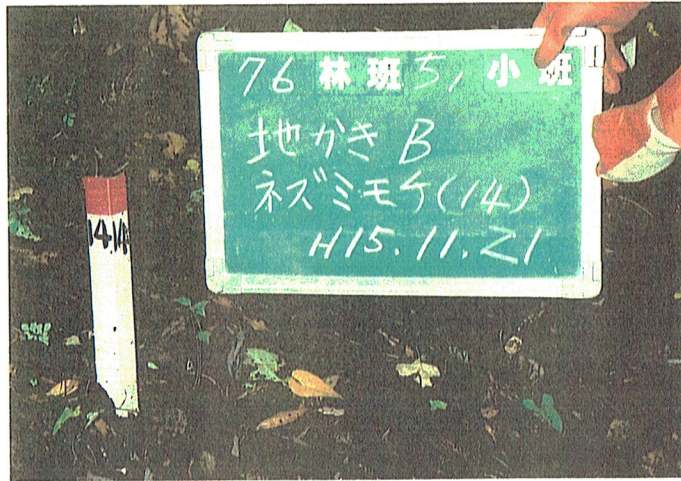 76 林班 51 小班
地かき B
ネズミモチ(14)
H15.11.21
14.14